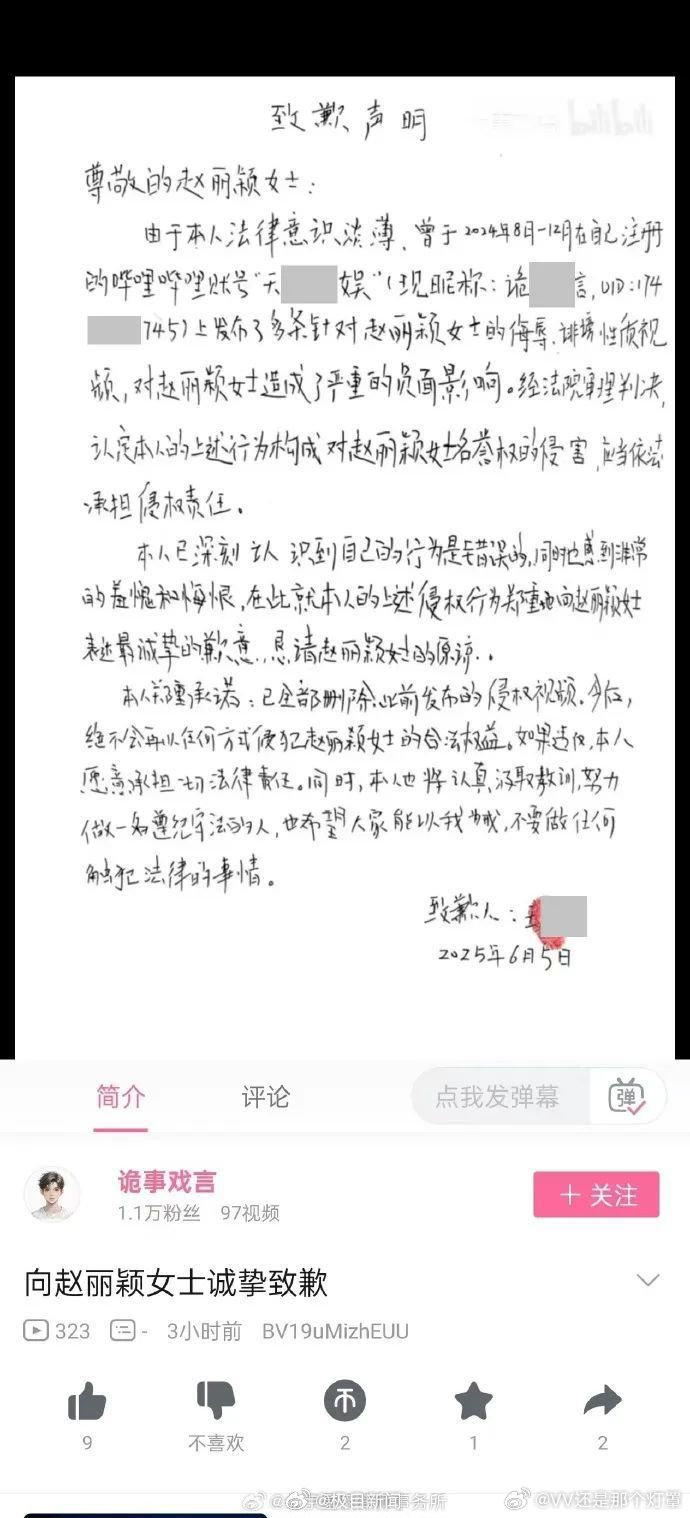 致歉声明
bilibili
尊敬的赵丽颖女士：
由于本人法律意识淡薄，曾于2024年8月-12月在自己注册
的哔哩哔哩账号“天 娱”（现昵称：诡 言，UID：174
745）上发布了多条针对赵丽颖女士的侮辱、诽谤性质视
频，对赵丽颖女士造成了严重的负面影响。经法院审理判决，
认定本人的上述行为构成对赵丽颖女士名誉权的侵害，应当依法
承担侵权责任。
本人已深刻认识到自己的行为是错误的，同时也感到非常
的羞愧和悔恨，在此就本人的上述侵权行为郑重地向赵丽颖女士
表达最诚挚的歉意，恳请赵丽颖女士的原谅。
本人郑重承诺：已全部删除此前发布的侵权视频。今后，
绝不会再以任何方式侵犯赵丽颖女士的合法权益。如果违反，本人
愿意承担一切法律责任。同时，本人也将认真汲取教训，努力
做一名遵纪守法的人，也希望大家能以我为戒，不要做任何
触犯法律的事情。
致歉人：
2025年6月5日
简介 评论 点我发弹幕 弹
诡事戏言
1.1万粉丝 97视频
＋ 关注
向赵丽颖女士诚挚致歉
323 - 3小时前 BV19uMizhEUU
9 不喜欢 2 1 2
@极目新闻 事务所 @VV还是那个灯罩